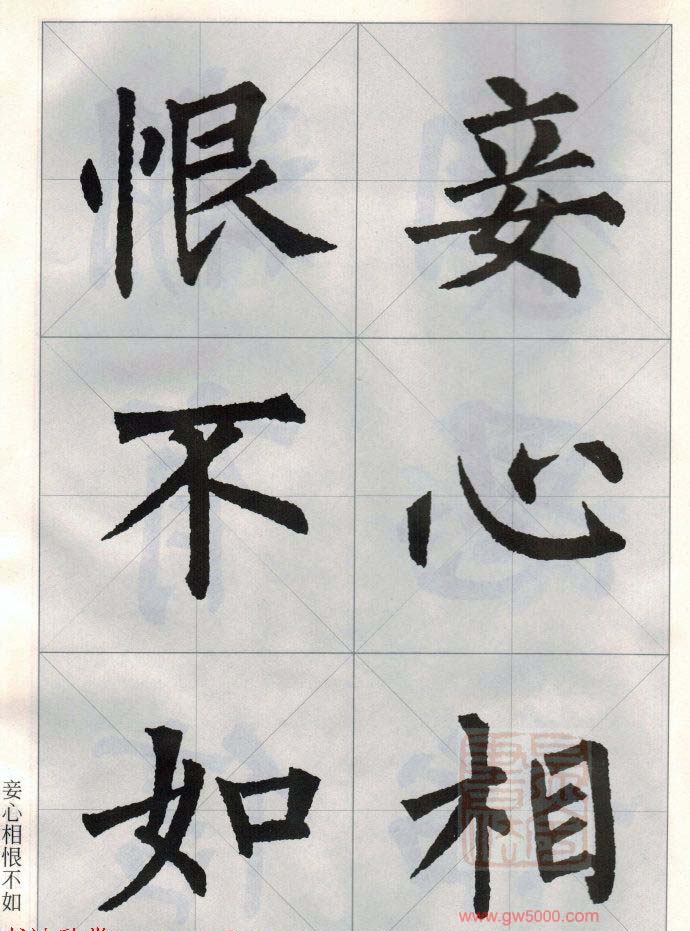 妾心相
恨不如
妾心相恨不如
www.gw5000.com